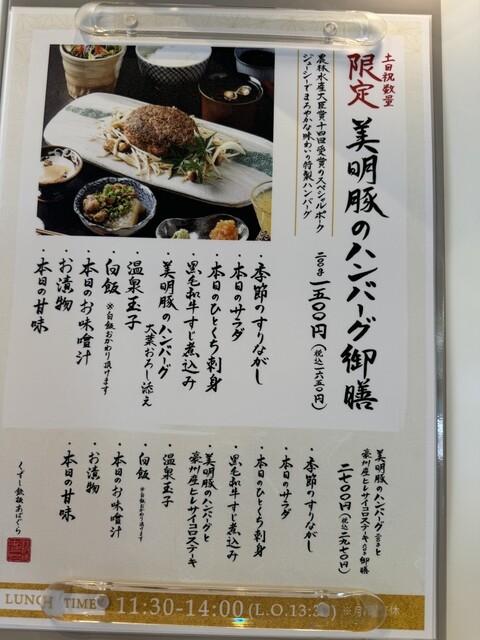 土日祝数量
限定 美明豚のハンバーグ御膳
農林水産大臣賞十四回受賞のスペシャルポーク
ジューシーでまろやかな味わいの特製ハンバーグ
二〇〇g 一五〇〇円(税込一六五〇円)
・季節のすりながし
・本日のサラダ
・本日のひとくち刺身
・黒毛和牛すじ煮込み
・美明豚のハンバーグ
大葉おろし添え
・温泉玉子
・白飯 ※白飯おかわり頂けます
・本日のお味噌汁
・お漬物
・本日の甘味
美明豚のハンバーグ
豪州産ヒレサイコロステーキ 御膳
二七〇〇円(税込二九七〇円)
・季節のすりながし
・本日のサラダ
・本日のひとくち刺身
・黒毛和牛すじ煮込み
・美明豚のハンバーグと
豪州産ヒレサイコロステーキ
・温泉玉子
・白飯 ※白飯おかわり頂けます
・本日のお味噌汁
・お漬物
・本日の甘味
くずし鉄板あばぐら
LUNCH TIME 11:30-14:00 (L.O.13:30) ※月